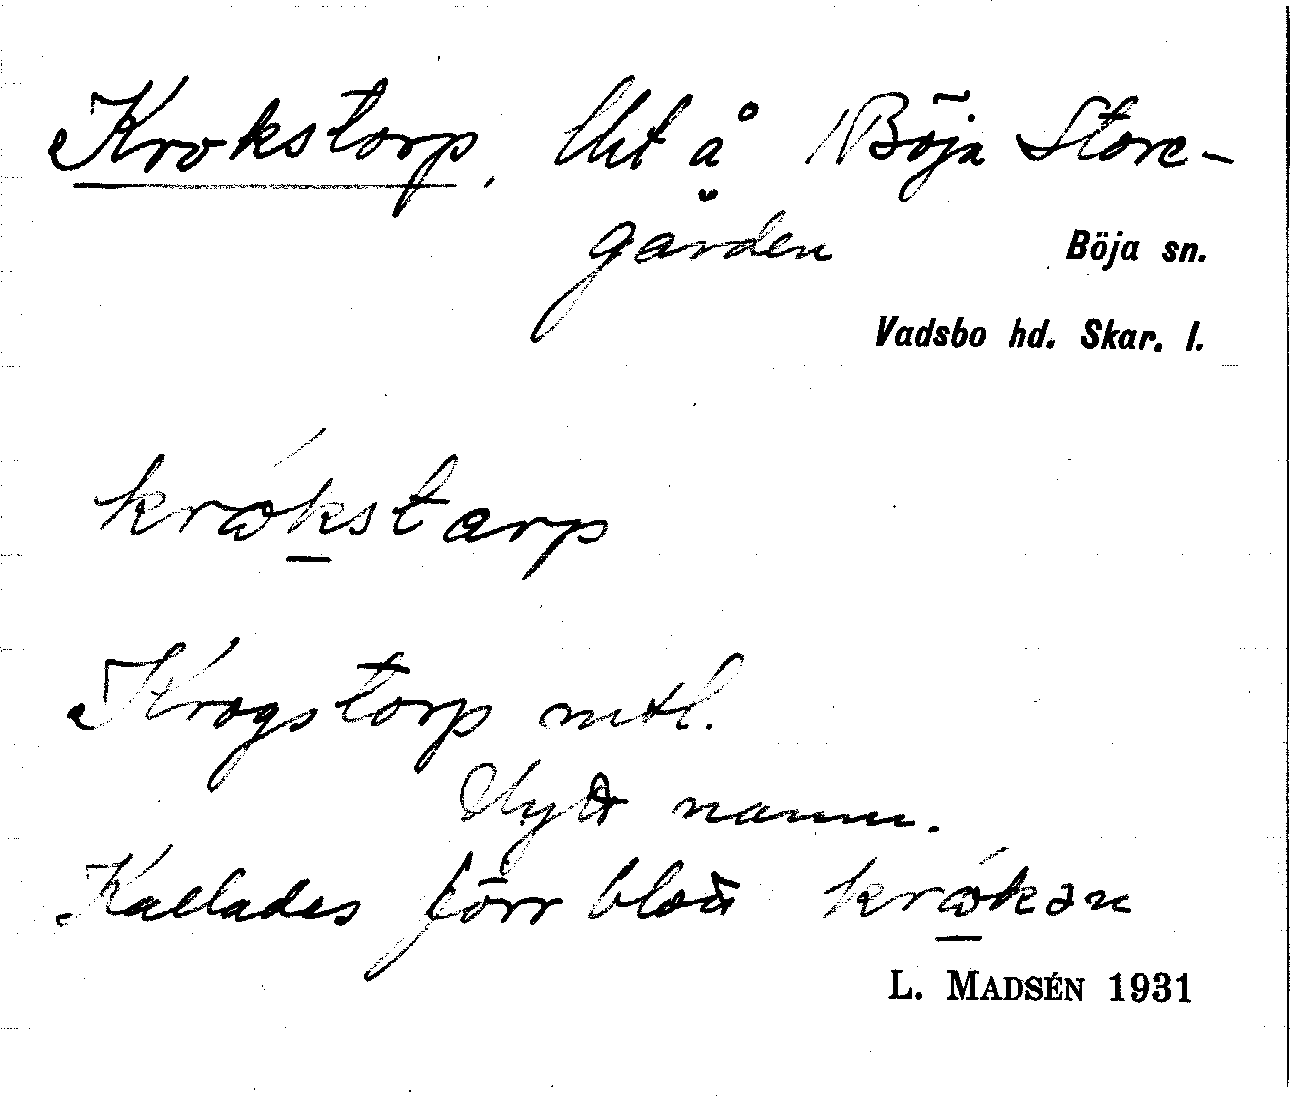 Krokstorp. Ut å N Böja Store-
gården
Böja sn.
Vadsbo hd. Skar. l.
krókstarp
Krogstorp mtl.
Nytt namn.
Kallades förr
krókan
L. MADSÉN 1931